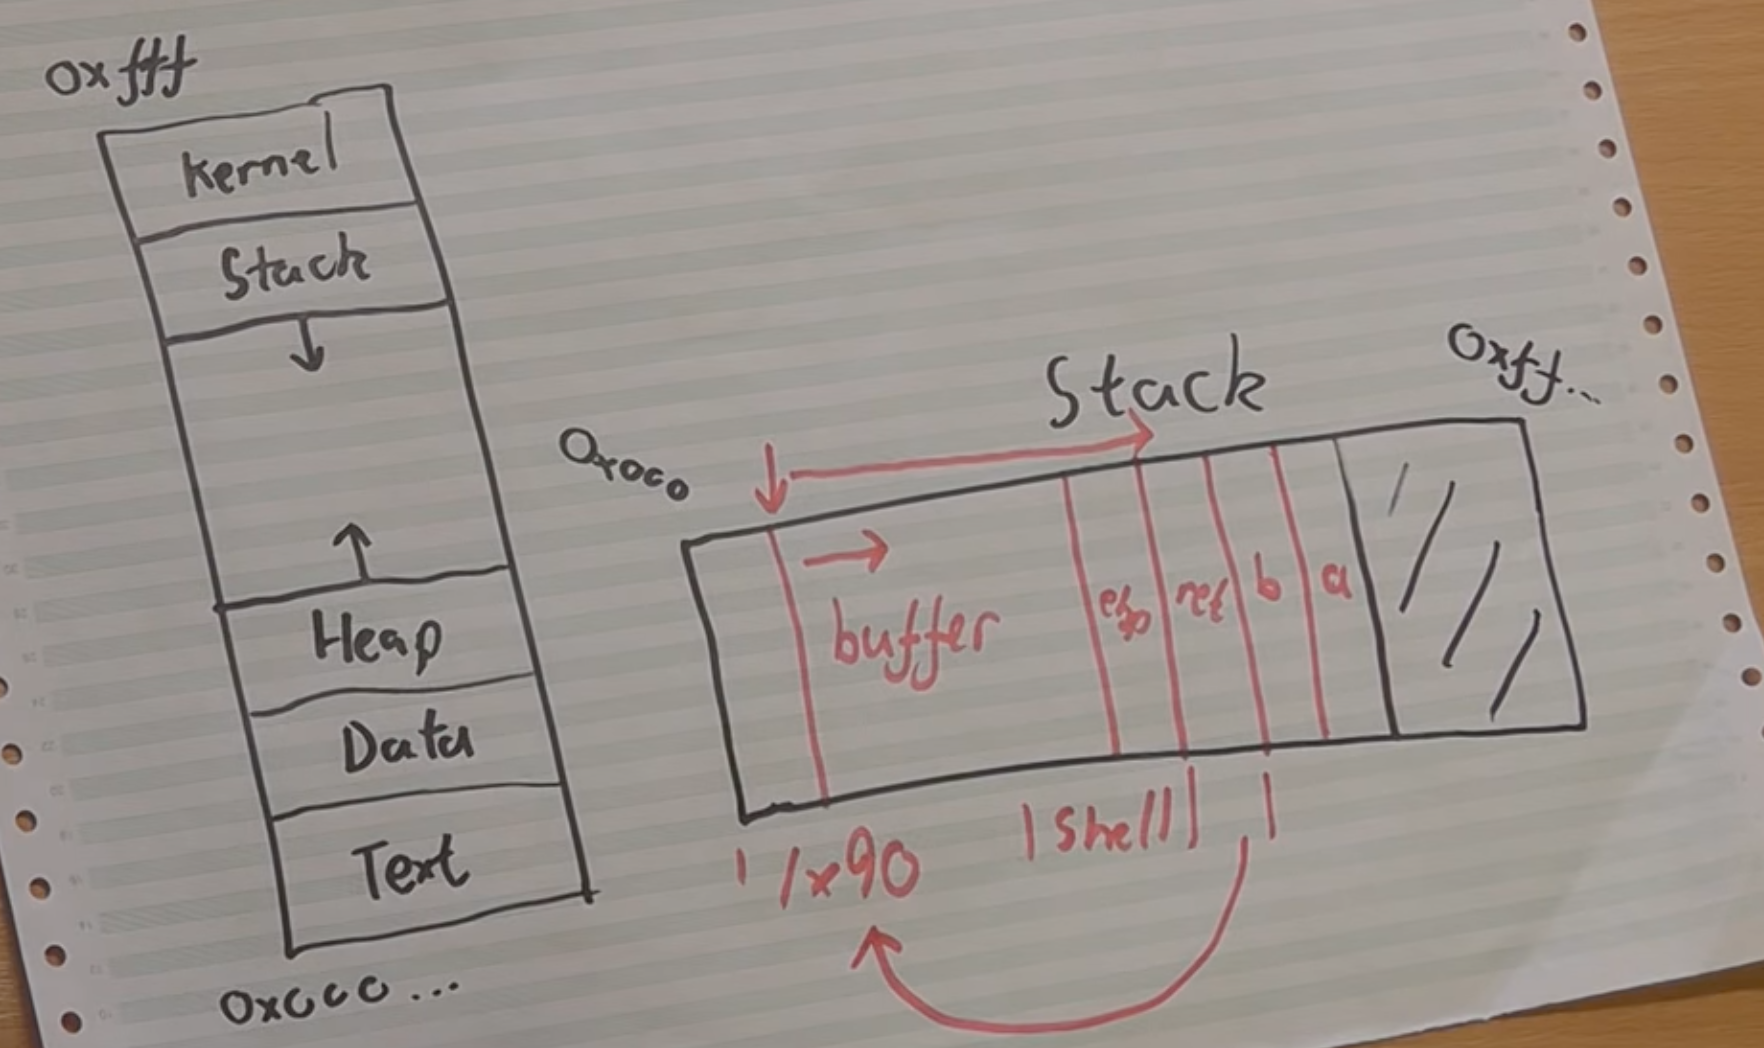 0xfff
Kernel
Stack
Heap
Data
Text
0x000...
Stack
0x000
0xff...
buffer
ebp
ret
b
a
/x90
shell